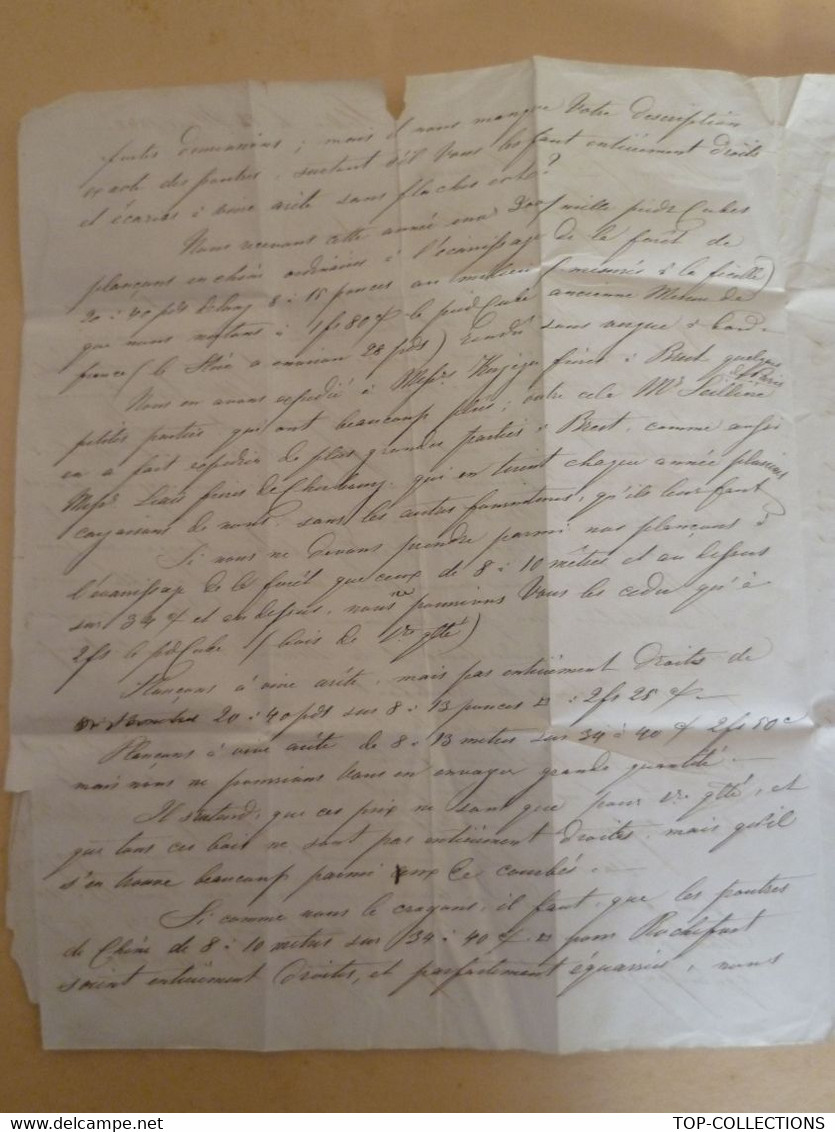 fortes dimensions; mais il nous manque Votre description
exacte des poutres, surtout s'il Vous les faut entièrement droits
et écarris à vive arête sans flaches
Nous recevons cette année mille pieds Cubes
plançons en chêne ordinaires à l'écarrissage de la forêt de
20 à 40 pds de long 8 à 15 pouces au milieu (mesurés à la ficelle)
que nous mettons à 1fs 80 le pied Cube ancienne Mesure de
france (le Stère a environ 28 pds) rendu sans vergue à bord
Nous en avons expédié à Messrs frères à Brest quelques
petites parties qui ont beaucoup plu; outre cela Mr de Paris
en a fait expédier de plus grandes parties à Brest, comme aussi
Messrs Liais frères de Cherbourg, qui en tirent chaque année plusieurs
cargaisons de nous, sans les autres qu'ils leur faut
Si nous ne devons prendre parmi nos plançons à
l'écarrissage de la forêt que ceux de 8 à 10 mètres et au dessus
sur 34 et en dessus, nous ne pourrions Vous les céder qu'à
2fs le pd Cube (bois de 1re qlté)
Plançons à vive arête, mais pas entièrement droites de
20 à 40 pds sur 8 à 13 pouces à 2fs 25
Plançons à vive arête de 8 à 13 mètres sur 34 à 40 2fs 50c
mais nous ne pourrions Vous en envoyer grande quantité.—
Il s'entend, que ces prix ne sont que pour 1re qlté, et
que tous ces bois ne sont pas entièrement droites, mais qu'il
s'en trouve beaucoup parmi eux de courbés.—
Si comme nous le croyons, il faut, que les poutres
de Chêne de 8 à 10 mètres sur 34 à 40 pour Rochefort
soient entièrement droites, et parfaitement équarries, nous
TOP-COLLECTIONS